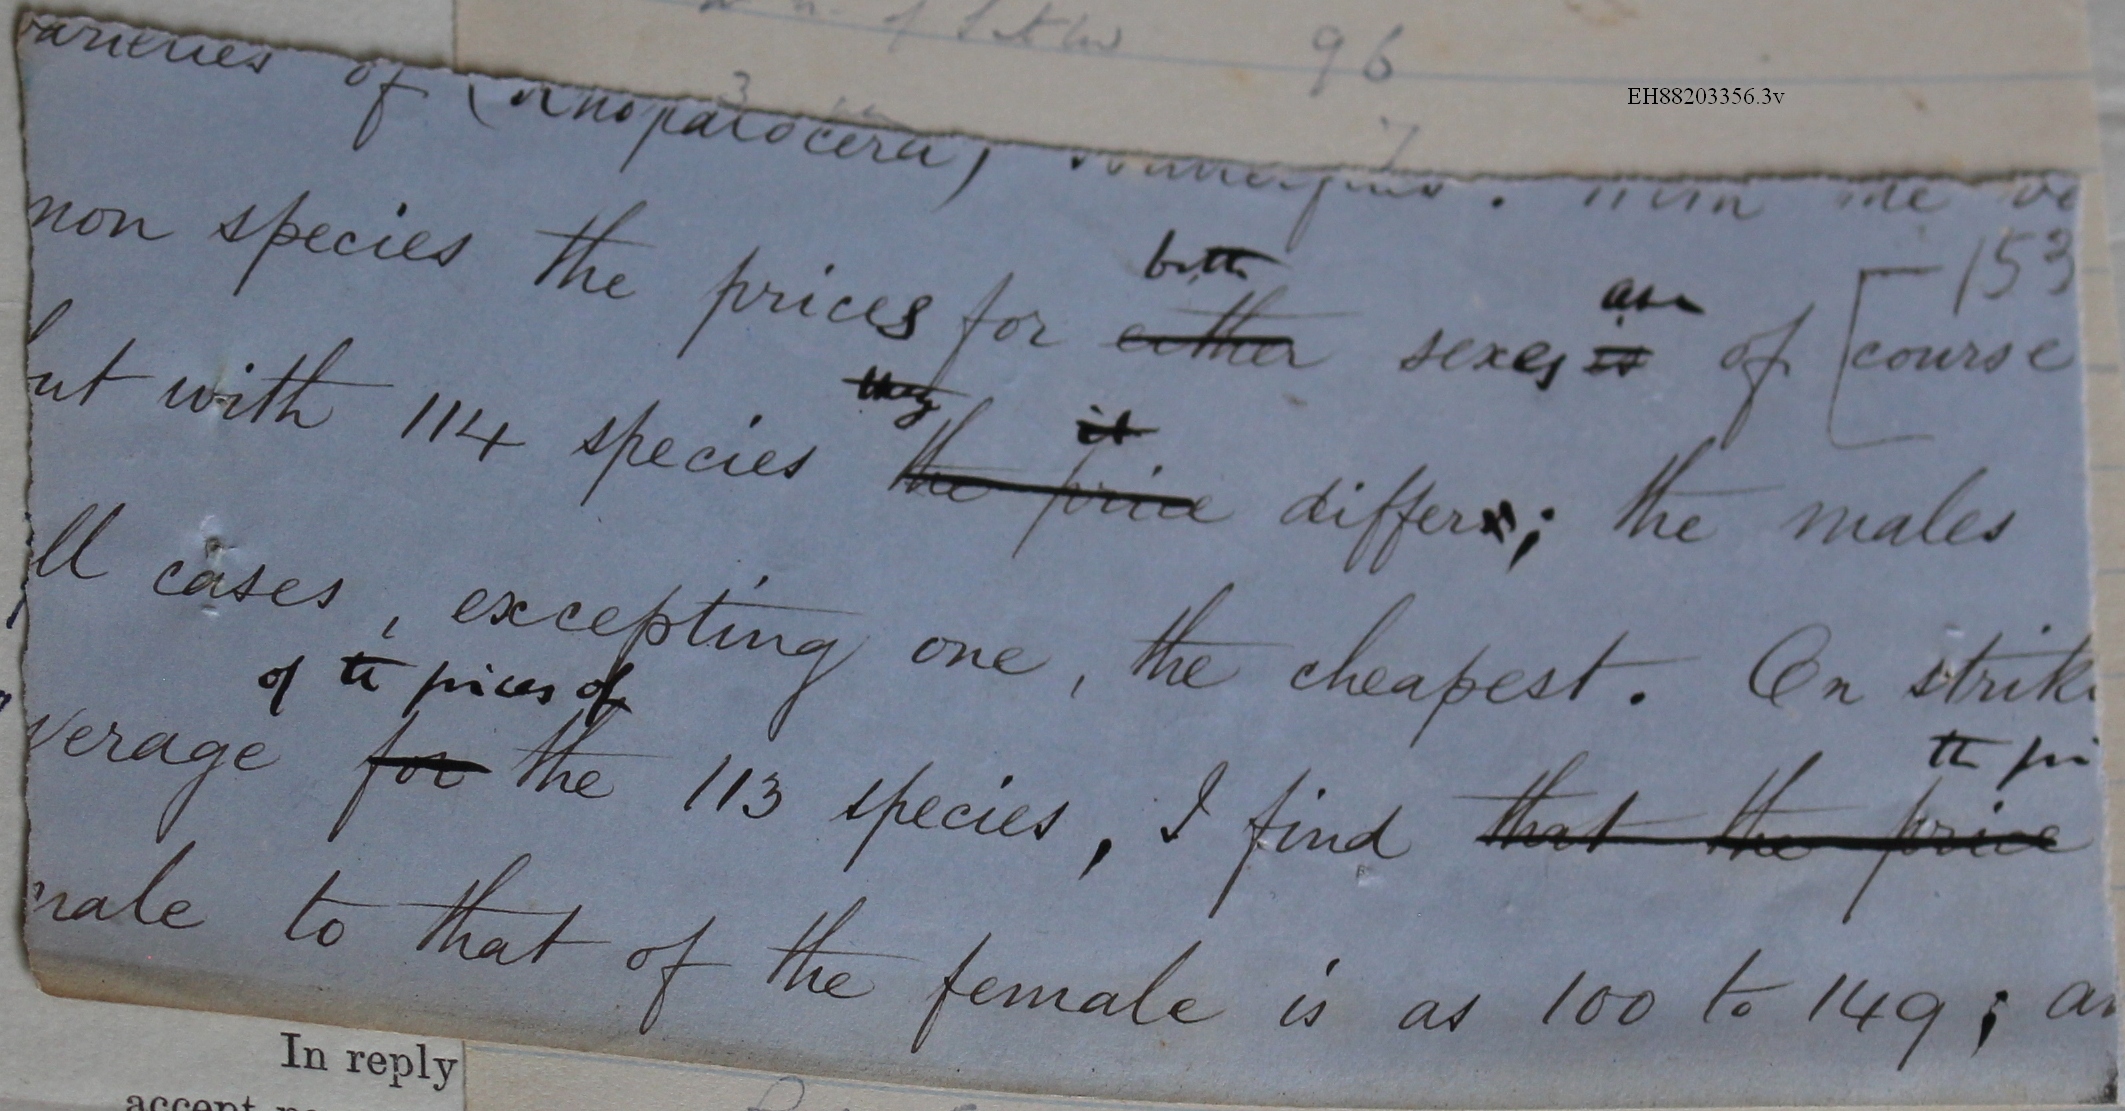 96
EH88203356.3v
varieties of (Rhopalocera) butterflies.
153
both are
mon species the prices for either sexes is of course
they it
but with 114 species the price differs; the males
ll cases, excepting one, the cheapest. On strik
of the prices of
verage for the 113 species, I find that the price
the pri
male to that of the female is as 100 to 149; an
In reply
accept